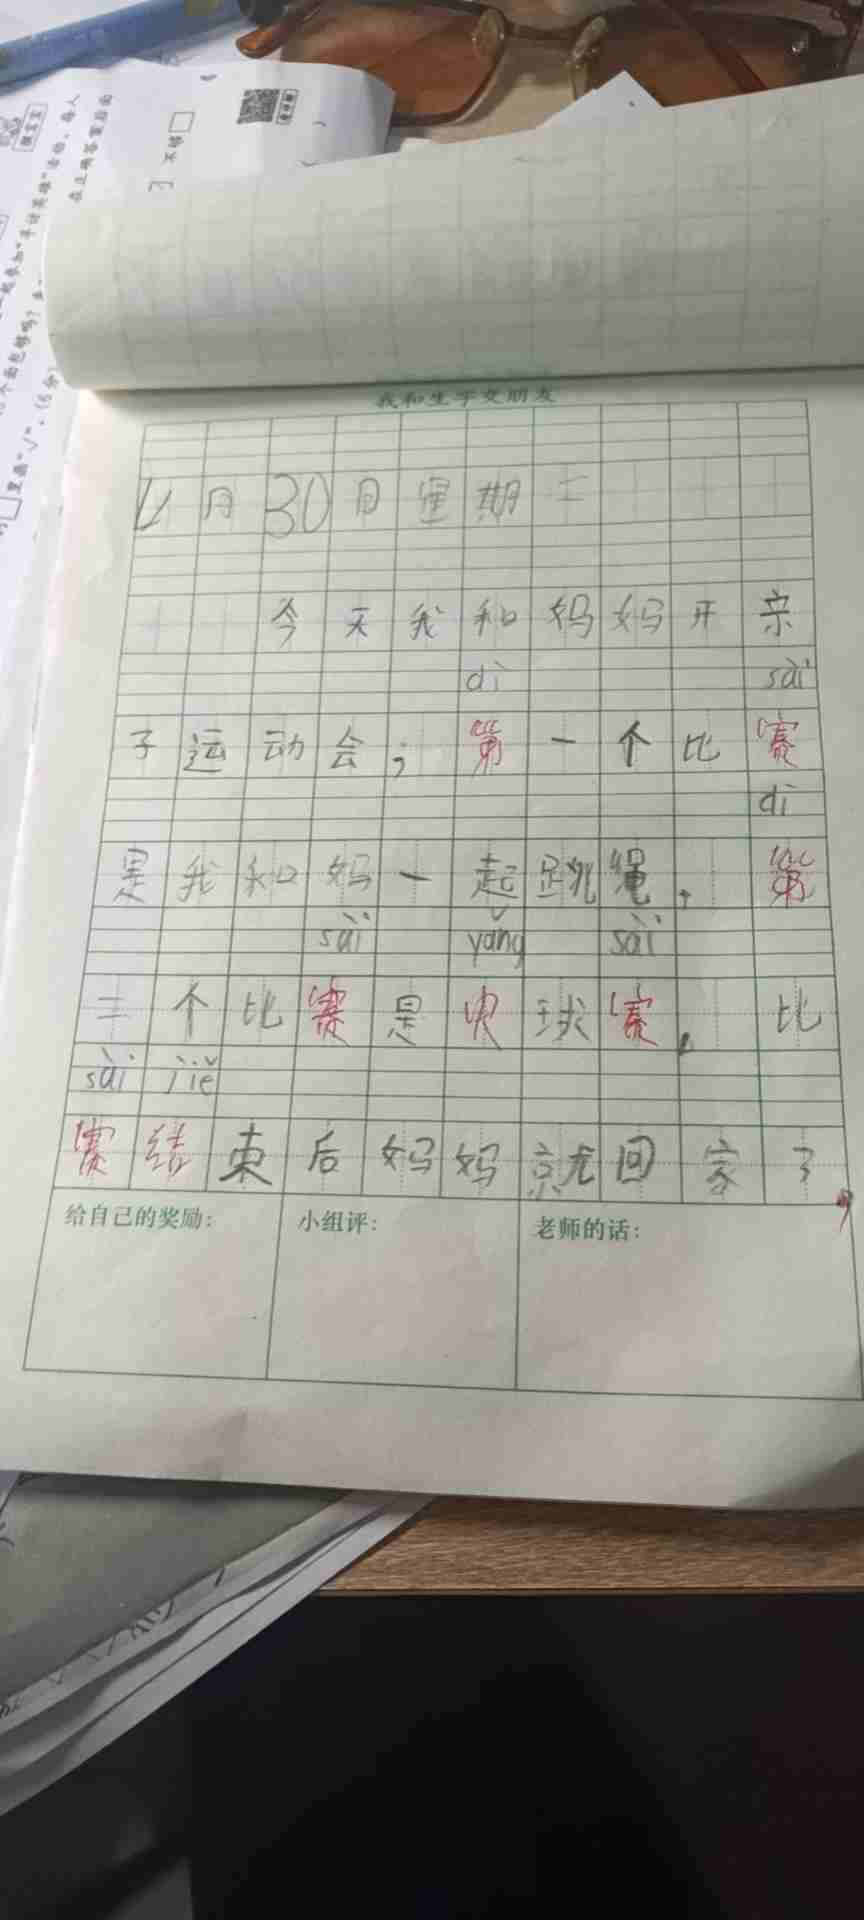 我和生字交朋友
4月30日星期二
今天我和妈妈开亲
dì sài
子运动会；第一个比赛
dì
是我和妈一起跳绳，第
sài yǎng sài
二个比赛是央球赛。比
sài jiě
赛结束后妈妈就回家了，
给自己的奖励： 小组评： 老师的话：